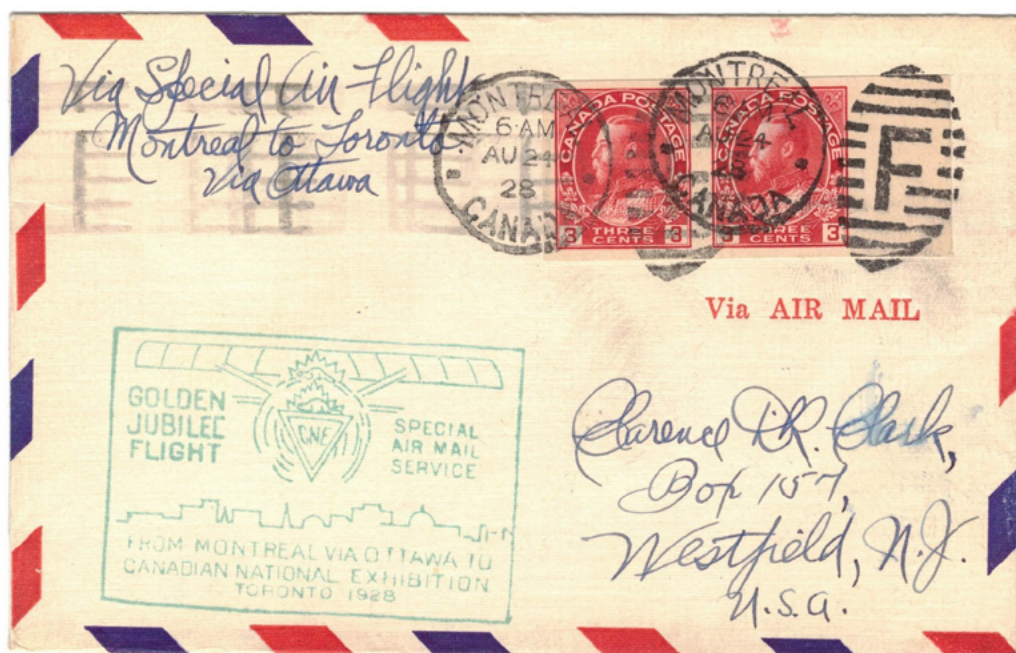 Via Special Air Flight
Montreal to Toronto
Via Ottawa
MONTREAL
6·AM
AU 24
28
CANADA
CANADA POSTAGE
3 THREE CENTS 3
MONTREAL
AU 24
CANADA
CANADA POSTAGE
3 THREE CENTS 3
F
Via AIR MAIL
GOLDEN
JUBILEE
FLIGHT
CNE
SPECIAL
AIR MAIL
SERVICE
FROM MONTREAL VIA OTTAWA TO
CANADIAN NATIONAL EXHIBITION
TORONTO 1928
Clarence Clark,
Box 157,
Westfield, N.J.
U.S.A.